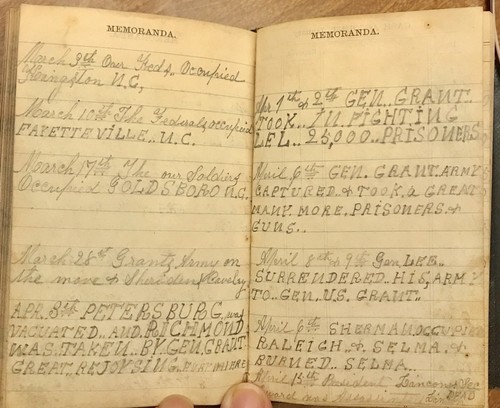 MEMORANDA.
March 9th Our Feds. Occupied
Kingston N.C,
March 10th The Federals occupied
FAYETTEVILLE.. N.C.
March 17th The our Solders
Occupied GOLDSBORO N.C.
March 28th Grants Army on
the move & Sheriden Cavelry
APR. 3th PETERSBURG was
VACUATED.. AND. RICHMOND
WAS. TAKEN.. BY. GEN. GRANT.
GREAT. REJOYSING
MEMORANDA.
Apr 1th & 2th GEN.. GRANT..
TOOK.. IN. FIGHTING
LEL.. 25,000.. PRISONERS
April 6th GEN. GRANT. ARMY
CAPTURED.. & TOOK. A GREAT
MANY. MORE. PRISONERS. &
GUNS..
April 8th & 9th Gen. LEE..
SURRENDERED.. HIS. ARMY
TO.. GEN. U.S. GRANT..
April 6th SHERMAN. OCCUPIE
RALEIGH. & SELMA. &
BURNED.. SELMA..
April 15th President Lincoln &
DEAD